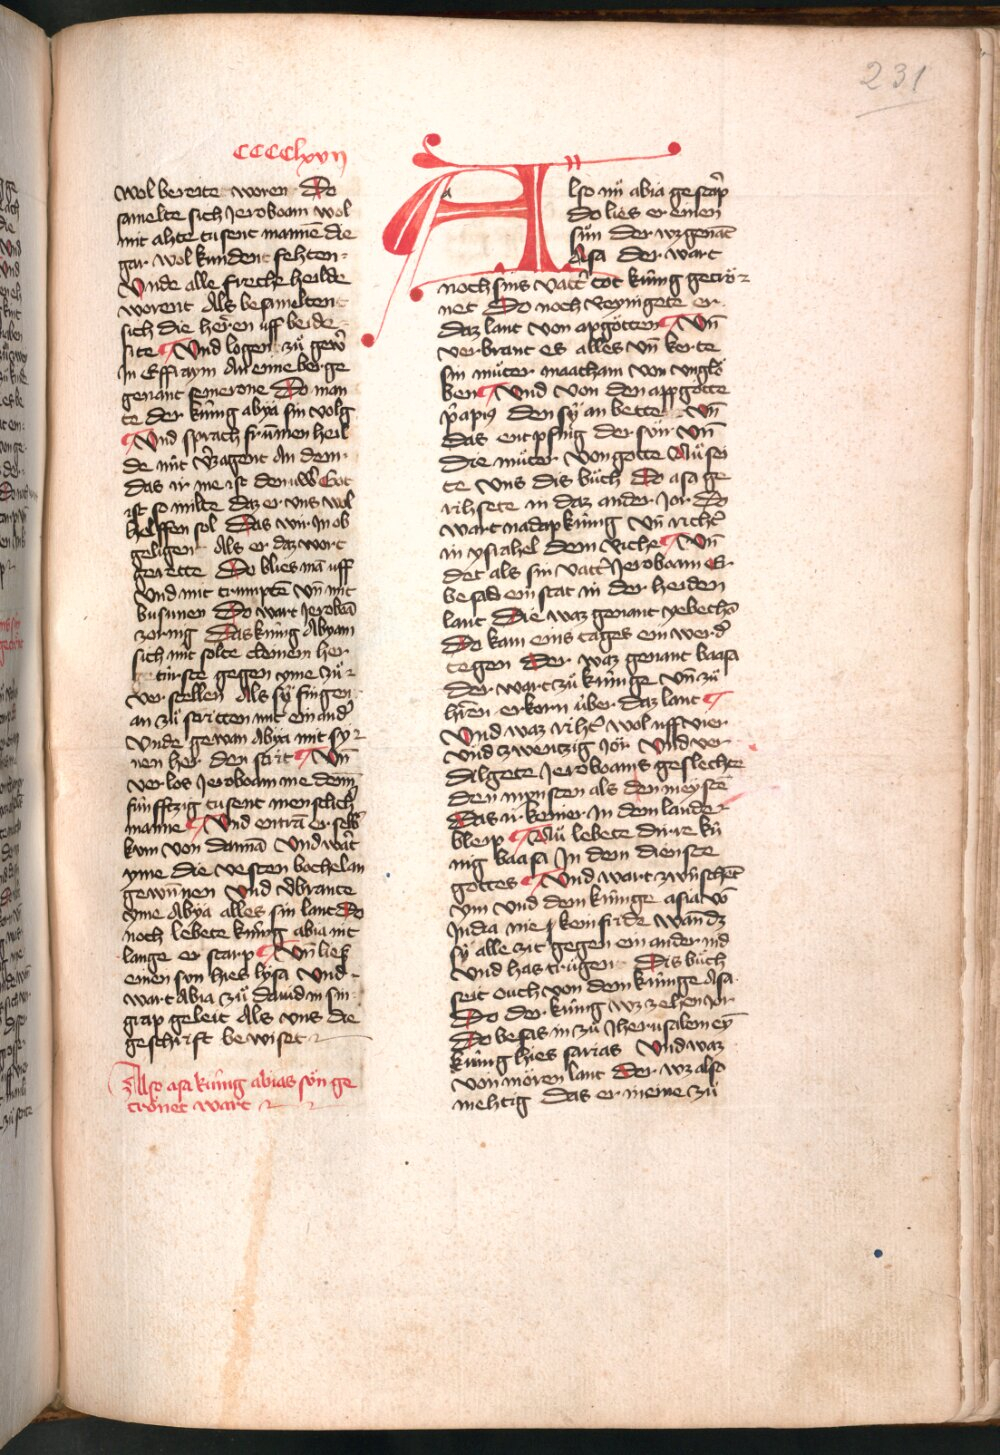 231
CCCClxvij
wol bereite woren Do
samelte sich Jeroboam wol
mit ahte tusent mannē die
gar wol kundent fehten
Vnde alle freche heilde
worent Als besameltent
sich die herē uff beide
site Vnd logen zů gewᵉ
In Effraym An eime berge
genant semerone Do man
te der kūnig abya sin volg
Vnd sprach frūmen heil
de nūt vᵉzagent An dem
das ir me ist den wᵉ Got
ist so milte daz er vns wol
helffen sol Das wir In ob
geligen Als er daz wort
gerette Do blies mā uff
Vnd mit trumptē vn̄ mit
busunen Do wart Jeroboā
zornig Das kūnig Abyam
sich mit solte cleinem her
getürste gegen yme zů
ver stellen Als sÿ fingen
an zů stritten mit ein andᵉ
Vnde gewan Abya mit sy
nen her den strit Vn̄
verlos Jeroboam me denn
fūnfftzig tusent menschlich
manne Vnd entrā er selbᵉ
kum von dannā Vnd wart
yme die vesten bochelan
gewūnnen Vnd vᵉbrante
yme Abya alles sin lant Do
noch lebete kūnig abia nit
lange er starp Vn̄ liess
einen sun hies lysa Vnd
wart abia zů dauid in sin
grap geleit Als vns die
geschrift bewiset
Also asa kūnig abias sůn ge
crönet wart
Also nū abia gestarp
do lies er einen
sūn der wz genāt
Asa der wart
noch sins vattᵉ tot kūnig gecrö
net Do noch reynigete er
daz lant von apgötten Vn̄
verbrant es alles vn̄ kerte
sin můter maacham von vnglö
ben Vnd von den appgotte
pᵉapius den sÿ an bette Vn̄
das entpfing der sůn Vn̄
die můter von gotte Nū sei
te vns dis bůch Do asa ge
rihsete in daz ander Jor Do
wart nadap kūnig vn̄ richᵉ
in ysrahel dem riche Vn̄
det als sin vattᵉ Jeroboam Er
besas ein stat in der heiden
lant Die waz genant yebechā
Do kam eins tages ein werdᵉ
tegen Der waz genant baasa
der wart zů kūnige vn̄ zů
hrēn erkorn über daz lant
Vnd waz rihtᵉ wol uff vier
vnd zwentzig Jor Vnd ver
dilgete Jeroboams geslehte
den mynsten als den meystē
Das ir keiner In dem lande
bleip Nū lebete dirre kū
nig baasa In dem dienste
gottes Vnd wart zwūschent
ym vnd dem kūnige asia vō
Juda nie kein fride wand
sÿ alle zit gegen ein ander nid
vnd has trůgen Dis bůch
seit ouch von dem kūnige Asa
Do der kūnig wz zehen Jor
Do besas in zů Jherusalem eȳ
kūnig hies sarias Vnd waz
von mören lant Der wz also
mehtig das er meine zů